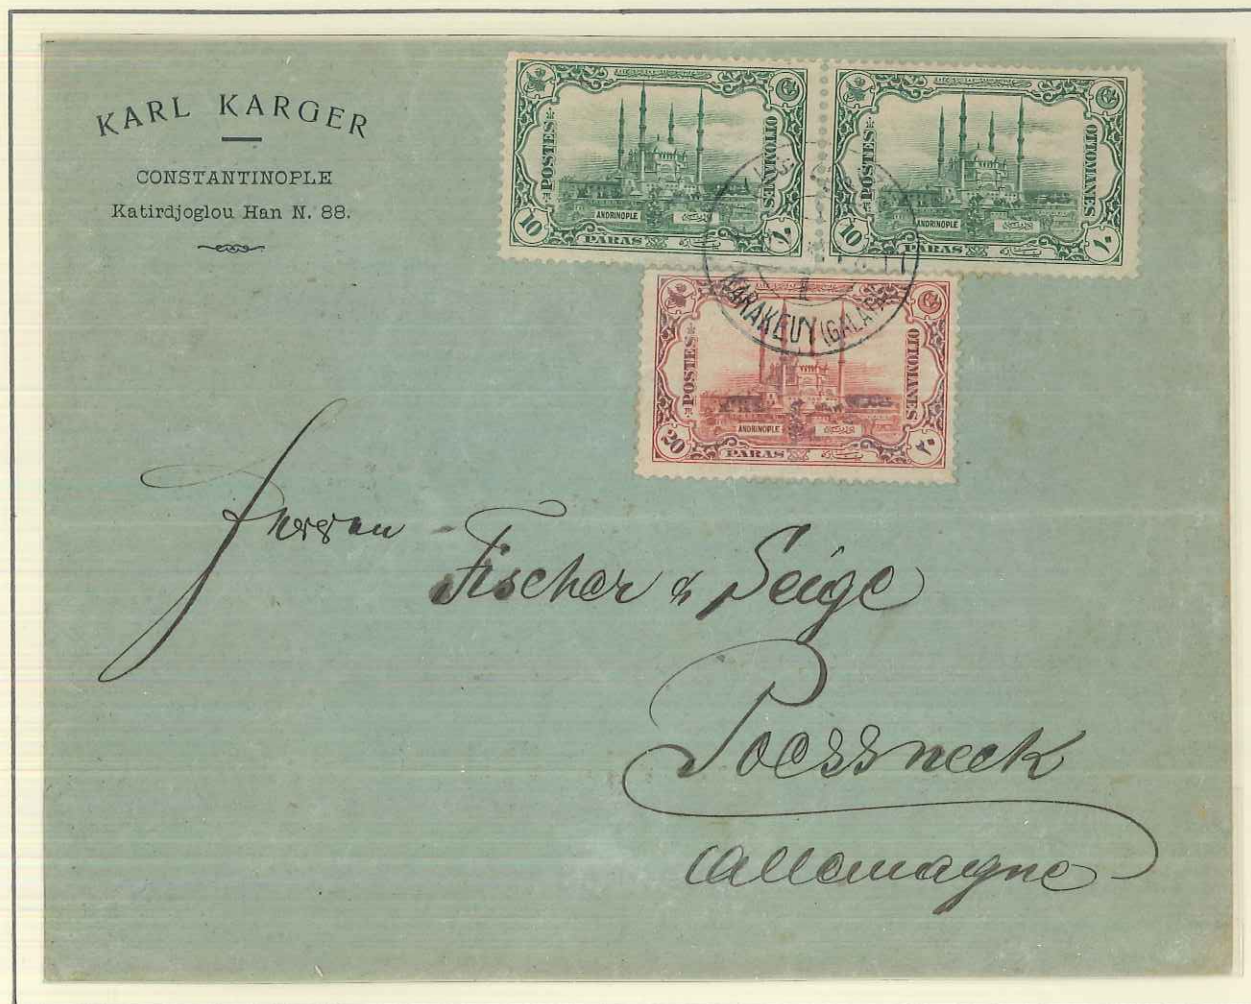 KARL KARGER
CONSTANTINOPLE
Katirdjoglou Han N. 88.
POSTES OTTOMANES
ANDRINOPLE
10 PARAS ١٠
POSTES OTTOMANES
ANDRINOPLE
10 PARAS ١٠
KARAKEUY (GALATA)
POSTES OTTOMANES
ANDRINOPLE
20 PARAS ٢٠
Herren Fischer & Seige
Poessneck
Allemagne